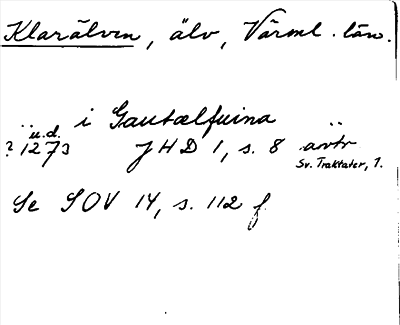 Klarälven, älv, Värml. län.
i Gautælfuina
u.d.
? 1273 JHD 1, s. 8 avtr
Sv. Traktater, 1.
Se SOV 14, s. 112 f